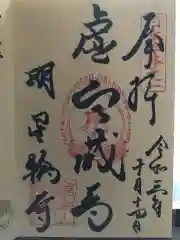 奉拝
令和三年
十月十四日
虚空蔵尊
明星輪寺